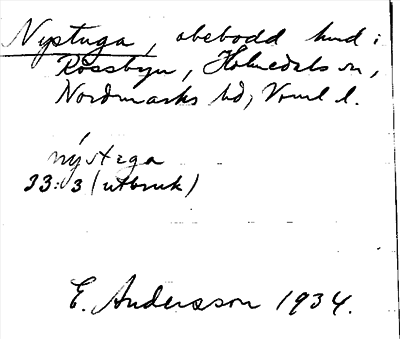 Nystuga, obebodd lund i
Rössbyn, Holmedals sn,
Nordmarks hd, Vrml l.
nýstuga
33:3 (utbruk)
E. Andersson 1934.